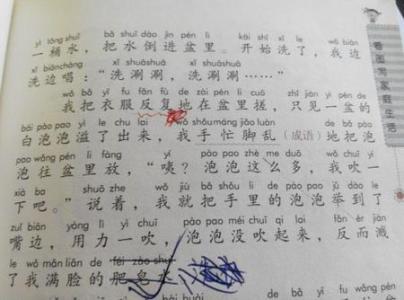 yì tǒng shuǐ bǎ shuǐ dào jìn pén lǐ kāi shǐ xǐ le wǒ biān
一桶水，把水倒进盆里。开始洗了，我边
xǐ biānchàng xǐ shuāshuā xǐ shuāshuā
洗边唱：“洗涮涮，洗涮涮……”
wǒ bǎ yī fu fǎn fù de zài pén lǐ cuō zhǐ jiàn yì pén de
我把衣服反复地在盆里搓，只见一盆的
bái pào pao yì le chu lai wǒ shǒumáng jiǎo luàn de bǎ pào
白泡泡溢了出来，我手忙脚乱（成语）地把泡
pao wǎng pén lǐ fàng pào pao zhè me duō wǒ chuī yì
泡往盆里放，“咦？泡泡这么多，我吹一
xià ba shuō zhe wǒ jiù bǎ shǒu lǐ de pào pao jǔ dào le
下吧。”说着，我就把手里的泡泡举到了
zuǐ biān yòng lì yì chuī pào pao méi chuī qǐ lai fǎn ér jiàn
嘴边，用力一吹，泡泡没吹起来，反而溅
le wǒ mǎn liǎn de féi zào shuǐ
了我满脸的肥皂水
看图写家庭生活